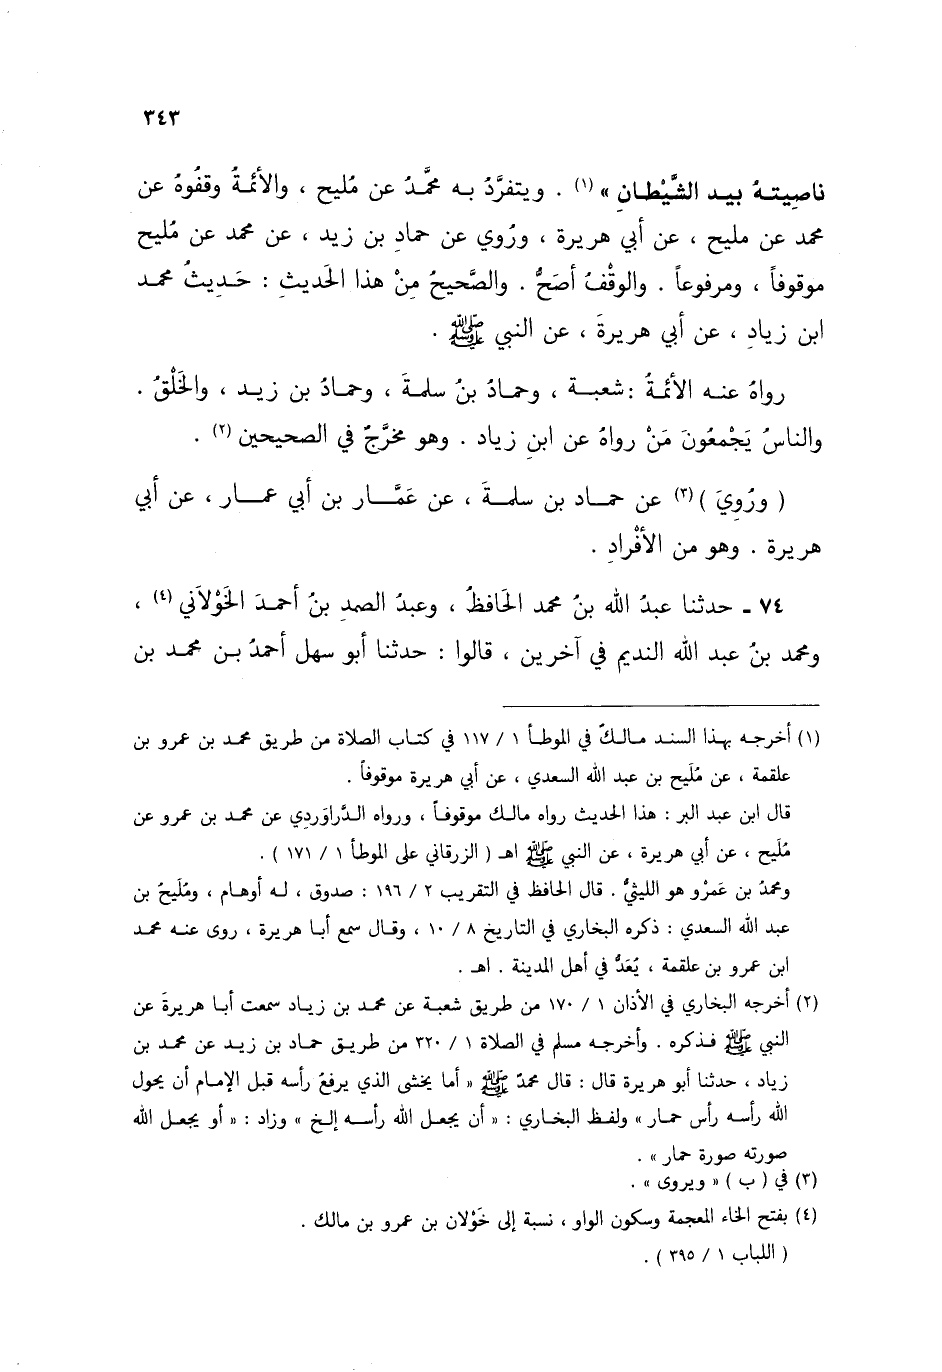 ٣٤٣
ناصيتهُ بيد الشَّيْطانِ » (١) . ويتفرَّدُ به محمَّدُ عن مُليح ، والأئمةُ وقفُوهُ عن
محمد عن مليح ، عن أبي هريرة ، ورُوي عن حمادِ بن زيد ، عن محمد عن مُليح
موقوفاً ، ومرفوعاً . والوقْفُ أصَحُّ . والصَّحيحُ مِنْ هذا الحَديثِ : حَديثُ محمد
ابن زيادِ ، عن أبي هريرةَ ، عن النبي ﷺ .
رواهُ عنه الأئمةُ : شعبة ، وحمادُ بنُ سلمةَ ، وحمادُ بن زيد ، والخَلْقُ .
والناسُ يَجْمعُونَ مَنْ رواهُ عن ابنِ زياد . وهو مخرَّجٌ في الصحيحين (٢) .
( ورُوِيَ )(٣) عن حماد بن سلمةَ ، عن عَمَّار بن أبي عمار ، عن أبي
هريرة . وهو من الأفْرادِ .
٧٤ ـ حدثنا عبدُ الله بنُ محمد الحَافظُ ، وعبدُ الصمدِ بنُ أحمدَ الخَوْلاَني (٤) ،
ومحمد بنُ عبد الله النديم في آخرين ، قالوا : حدثنا أبو سهل أحمدُ بن محمد بن
(١) أخرجه بهذا السند مالكٌ في الموطأ ١ / ١١٧ في كتاب الصلاة من طريق محمد بن عمرو بن
علقمة ، عن مُلَيح بن عبد الله السعدي ، عن أبي هريرة موقوفاً .
قال ابن عبد البر : هذا الحديث رواه مالك موقوفاً ، ورواه الدَّراوَردي عن محمد بن عمرو عن
مُلَيح ، عن أبي هريرة ، عن النبي ﷺ اهـ ( الزرقاني على الموطأ ١ / ١٧١ ) .
ومحمدُ بن عَمرْو هو الليثيُّ . قال الحافظ في التقريب ٢ / ١٩٦ : صدوق ، له أوهام ، ومُلَيحُ بن
عبد الله السعدي : ذكره البخاري في التاريخ ٨ / ١٠ ، وقال سمع أبا هريرة ، روى عنه محمد
ابن عمرو بن علقمة ، يُعَدُّ في أهل المدينة . اهـ .
(٢) أخرجه البخاري في الأذان ١ / ١٧٠ من طريق شعبة عن محمد بن زياد سمعت أبا هريرةَ عن
النبي ﷺ فذكره . وأخرجه مسلم في الصلاة ١ / ٣٢٠ من طريق حماد بن زيد عن محمد بن
زياد ، حدثنا أبو هريرة قال : قال محمدٌ ﷺ « أما يخشى الذي يرفعُ رأسه قبل الإمام أن يحول
الله رأسه رأس حمار » ولفظ البخاري : « أن يجعل الله رأسه إلخ » وزاد : « أو يجعل الله
صورته صورة حمار » .
(٣) في ( ب ) « ويروى » .
(٤) بفتح الخاء المعجمة وسكون الواو ، نسبة إلى خَوْلان بن عمرو بن مالك .
( اللباب ١ / ٣٩٥ ) .